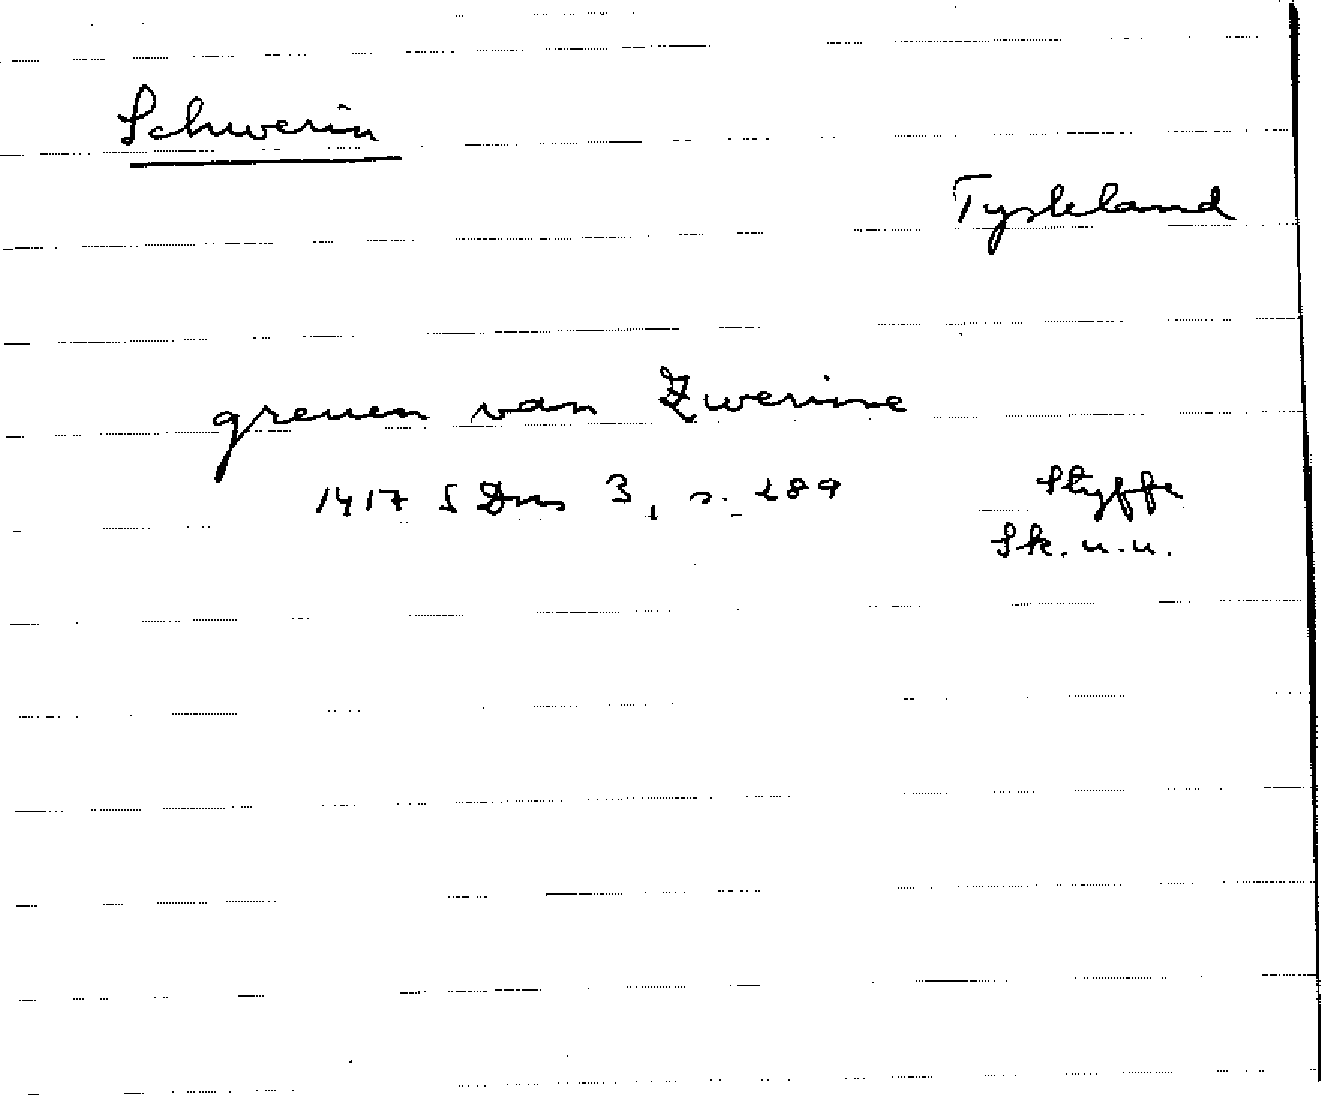 Schwerin
Tyskland
greuen van Zwerine
1417 SDns 3, s. 189 Styffe
Sk. u. u.